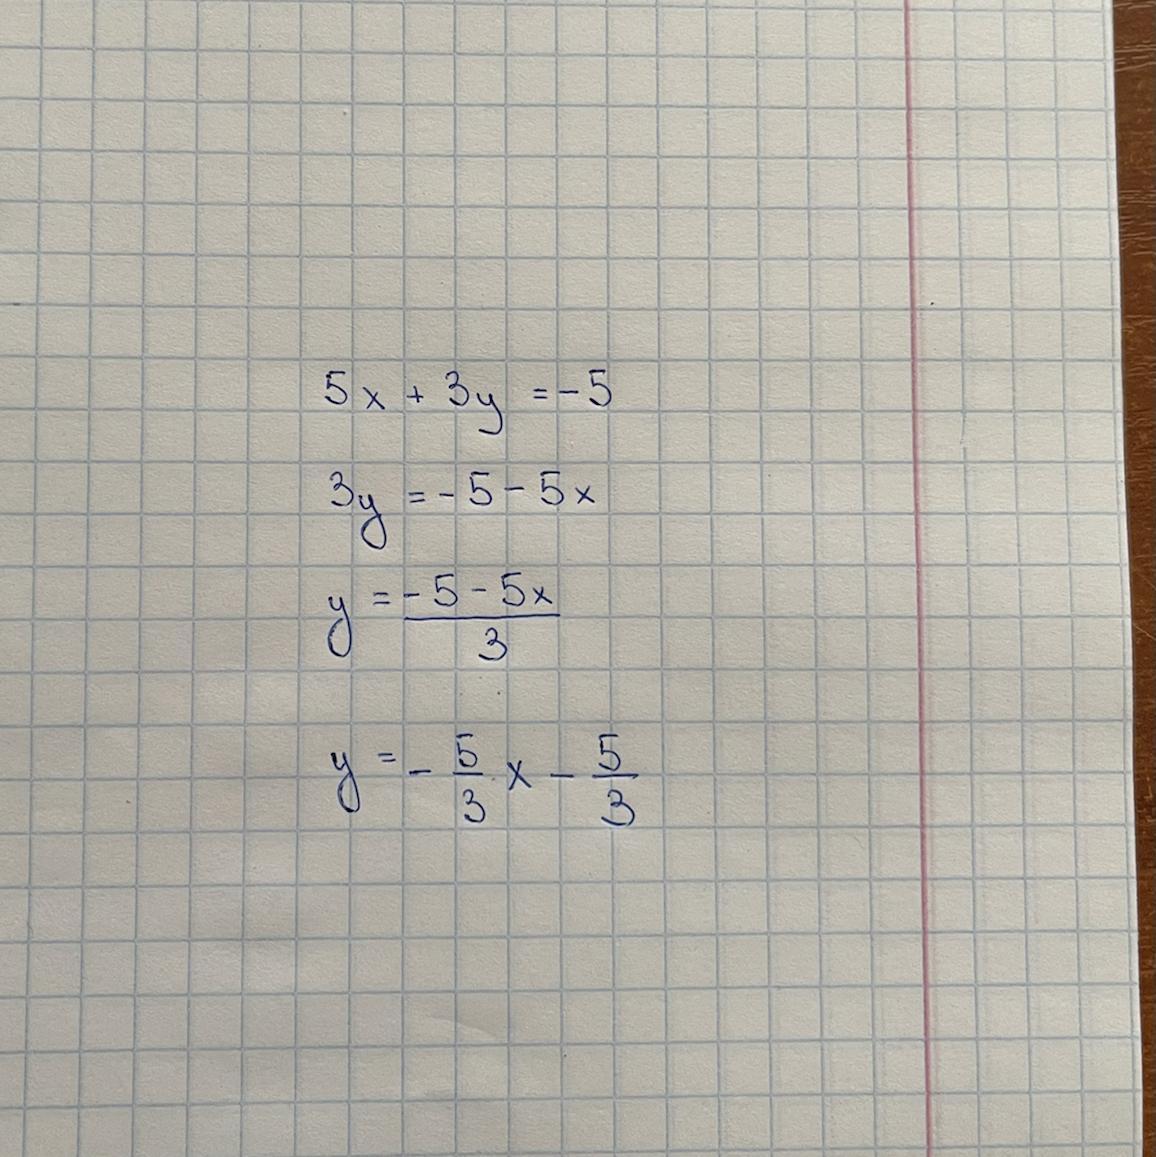 5x + 3y = -5
3y = -5 - 5x
y = \frac{-5 - 5x}{3}
y = -\frac{5}{3}x - \frac{5}{3}